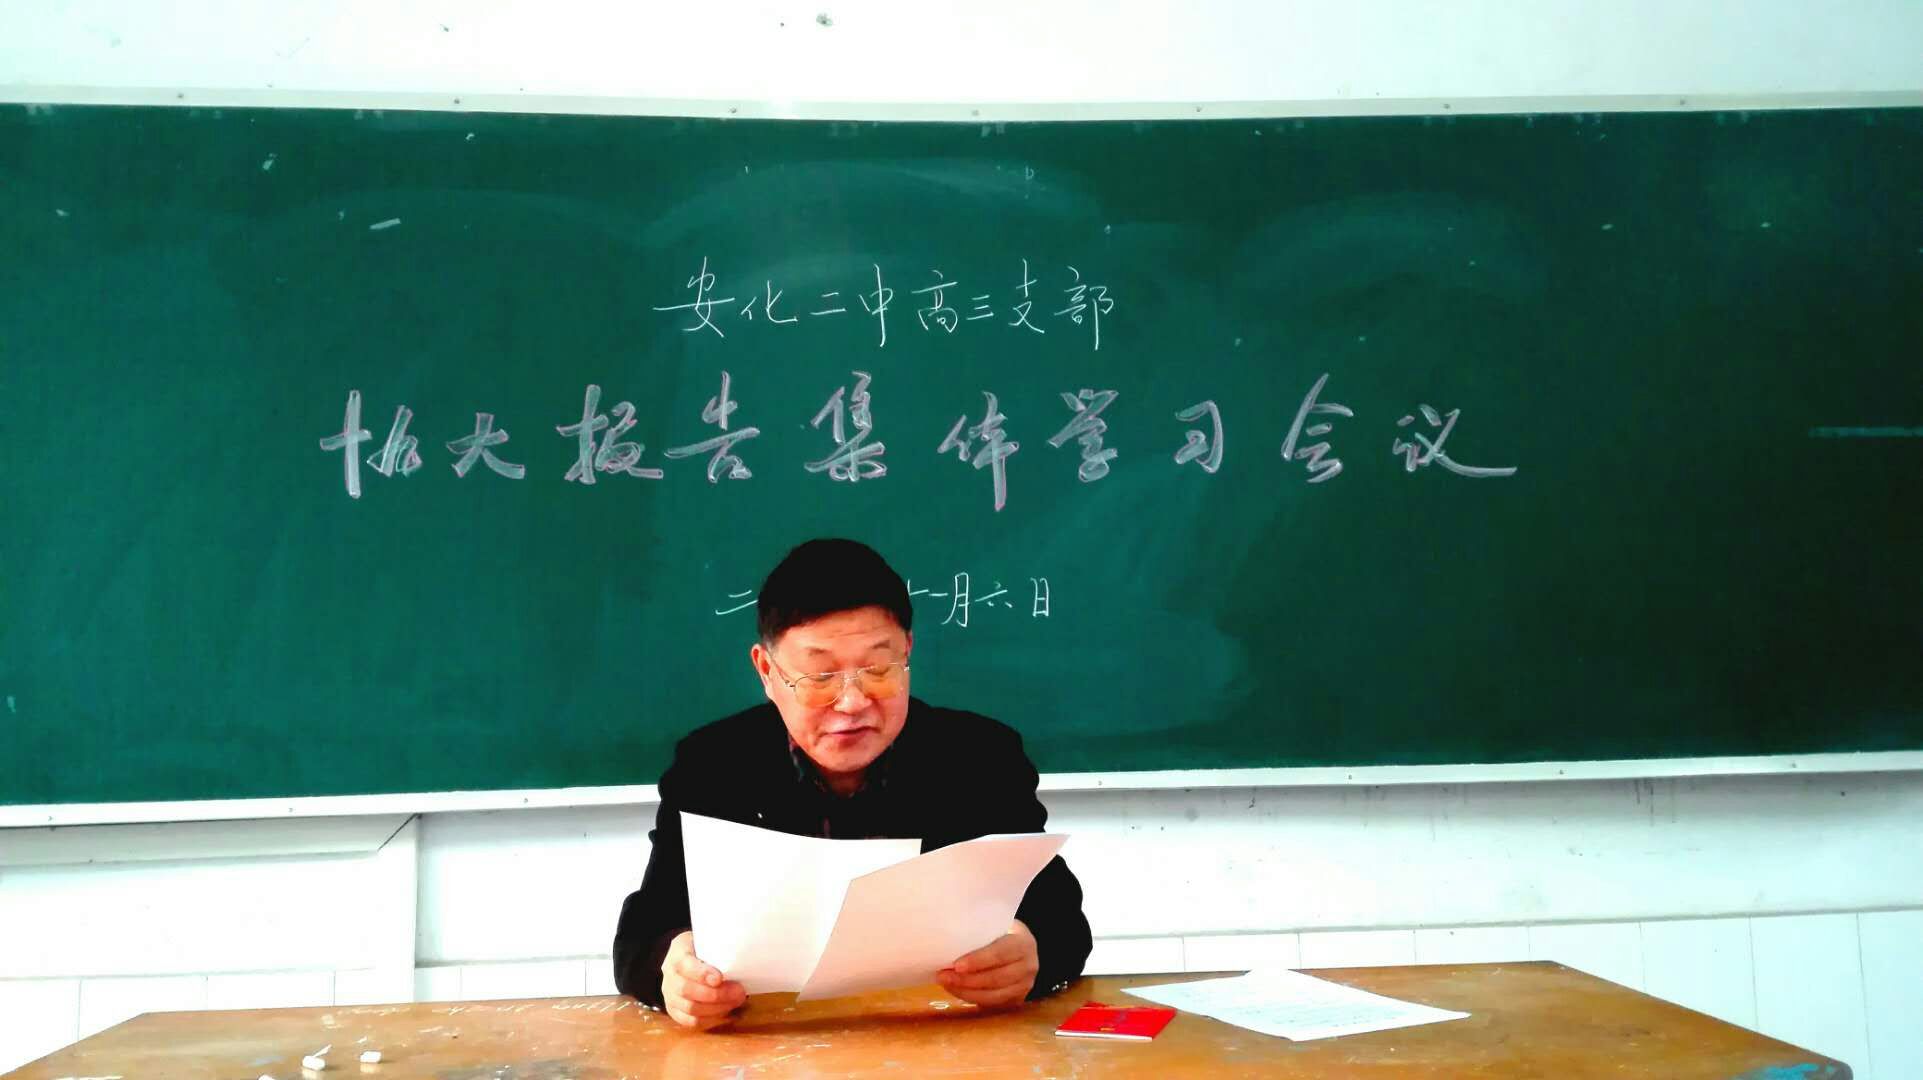 安化二中高三支部
十九大报告集体学习会议
二 十一月六日